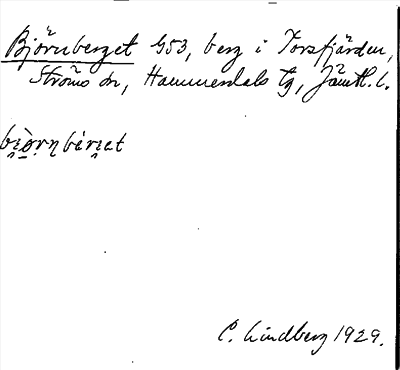 Björnberget 953, berg i Torsfjärden,
Ströms sn, Hammerdals tg, Jämtl. l.
bi̯ò̱rn bèri̯et
C. Lindberg 1929.